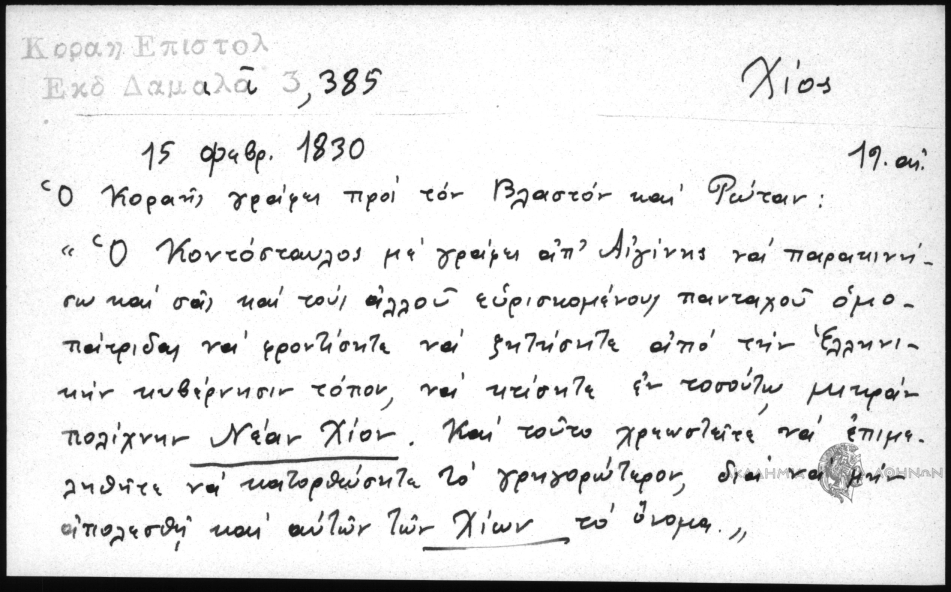 Κοραη Επιστολ
Εκδ Δαμαλᾶ 3, 385
Χίος
15 φεβρ. 1830
19. αἰ.
Ὁ Κοραῆς γράφει πρὸς τὸν Βλαστὸν καὶ Ρώταν:
“Ὁ Κοντόσταυλος μὲ γράφει ἀπ' Αἰγίνης νὰ παρακινή-
σω καὶ σᾶς καὶ τοὺς ἀλλοῦ εὑρισκομένους πανταχοῦ ὁμο-
πάτριδας νὰ φροντίσητε νὰ ζητήσητε ἀπὸ τὴν Ἑλληνι-
κὴν κυβέρνησιν τόπον, νὰ κτίσητε ἐν τοσούτῳ μικρὰν
πολίχνην Νέαν Χίον. Καὶ τοῦτο χρεωστεῖτε νὰ ἐπιμε-
ληθῆτε νὰ κατορθώσητε τὸ γρηγορώτερον, διὰ νὰ μὴν
ἀπολεσθῇ καὶ αὐτῶν τῶν Χίων τὸ ὄνομα.„
ΑΚΑΔΗΜΙΑ ΑΘΗΝΩΝ